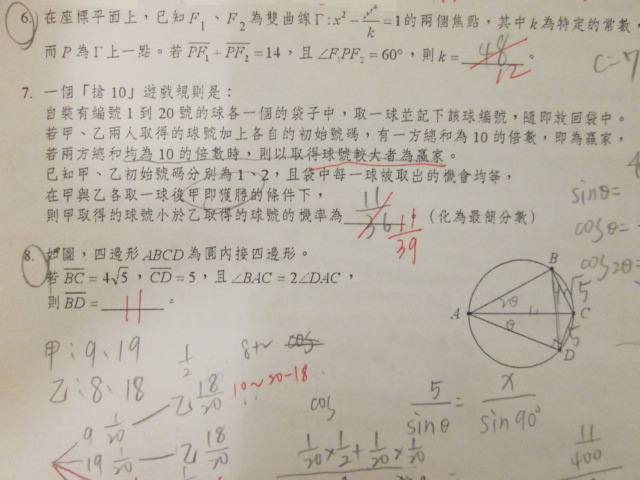 6. 在座標平面上，已知 F₁、F₂ 為雙曲線 Γ: x² − y²/k = 1 的兩個焦點，其中 k 為特定的常數，
而 P 為 Γ 上一點。若 PF₁ + PF₂ = 14，且 ∠F₁PF₂ = 60°，則 k = 48 12
c = 7
7. 一個「搶 10」遊戲規則是：
自裝有編號 1 到 20 號的球各一個的袋子中，取一球並記下該球編號，隨即放回袋中。
若甲、乙兩人取得的球號加上各自的初始號碼，有一方總和為 10 的倍數，即為贏家，
若兩方總和均為 10 的倍數時，則以取得球號較大者為贏家。
已知甲、乙初始號碼分別為 1、2，且袋中每一球被取出的機會均等，
在甲與乙各取一球後甲即獲勝的條件下，
則甲取得的球號小於乙取得的球號的機率為 11/36 11/39 （化為最簡分數）
sinθ=
cosθ=
cos2θ=
8. 如圖，四邊形 ABCD 為圓內接四邊形。
若 BC = 4√5，CD = 5，且 ∠BAC = 2∠DAC，
則 BD = 11 。
A B C D
2θ
θ
5
甲：9、19
乙：8、18
1/2
8+~ cos
10~20-18
9 1/20 乙 18/20
19 1/20 乙 18/20
cos
5/sinθ = x/sin90°
1/20 × 1/2 + 1/20 × 1/20
11/400